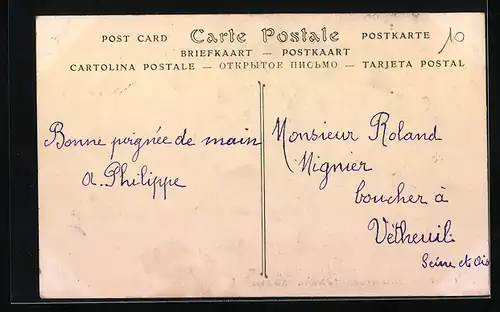 POST CARD Carte Postale POSTKARTE 10
BRIEFKAART — POSTKAART
CARTOLINA POSTALE — ОТКРЫТОЕ ПИСЬМО — TARJETA POSTAL
Bonne poignée de main
A. Philippe
Monsieur Roland
Mignier
boucher à
Vétheuil
Seine et Oise